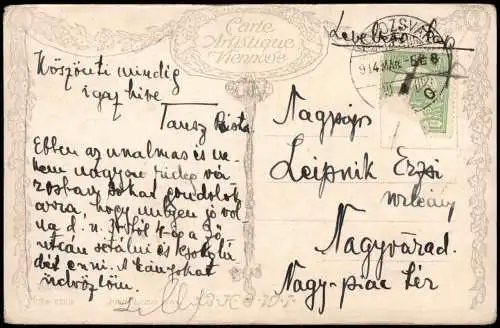 Carte
Artistique
Viennoise
Levelező Lap
OZSVÁR
914 MAR
Köszönti mindig
igaz híve
Tausz Pista
Ebben az unalmas és
nem nagyon rideg vá
rosban sokat gondolok
arra, hogy milyen jó vol
na d. u. 3-tól 4-ig a Fő
utcán sétálni és
enni. A lányokat
üdvözlöm.
Nagys
Leipnik Erzsi
urleány
Nagyvárad.
Nagy-piac tér
B.K.W.I.